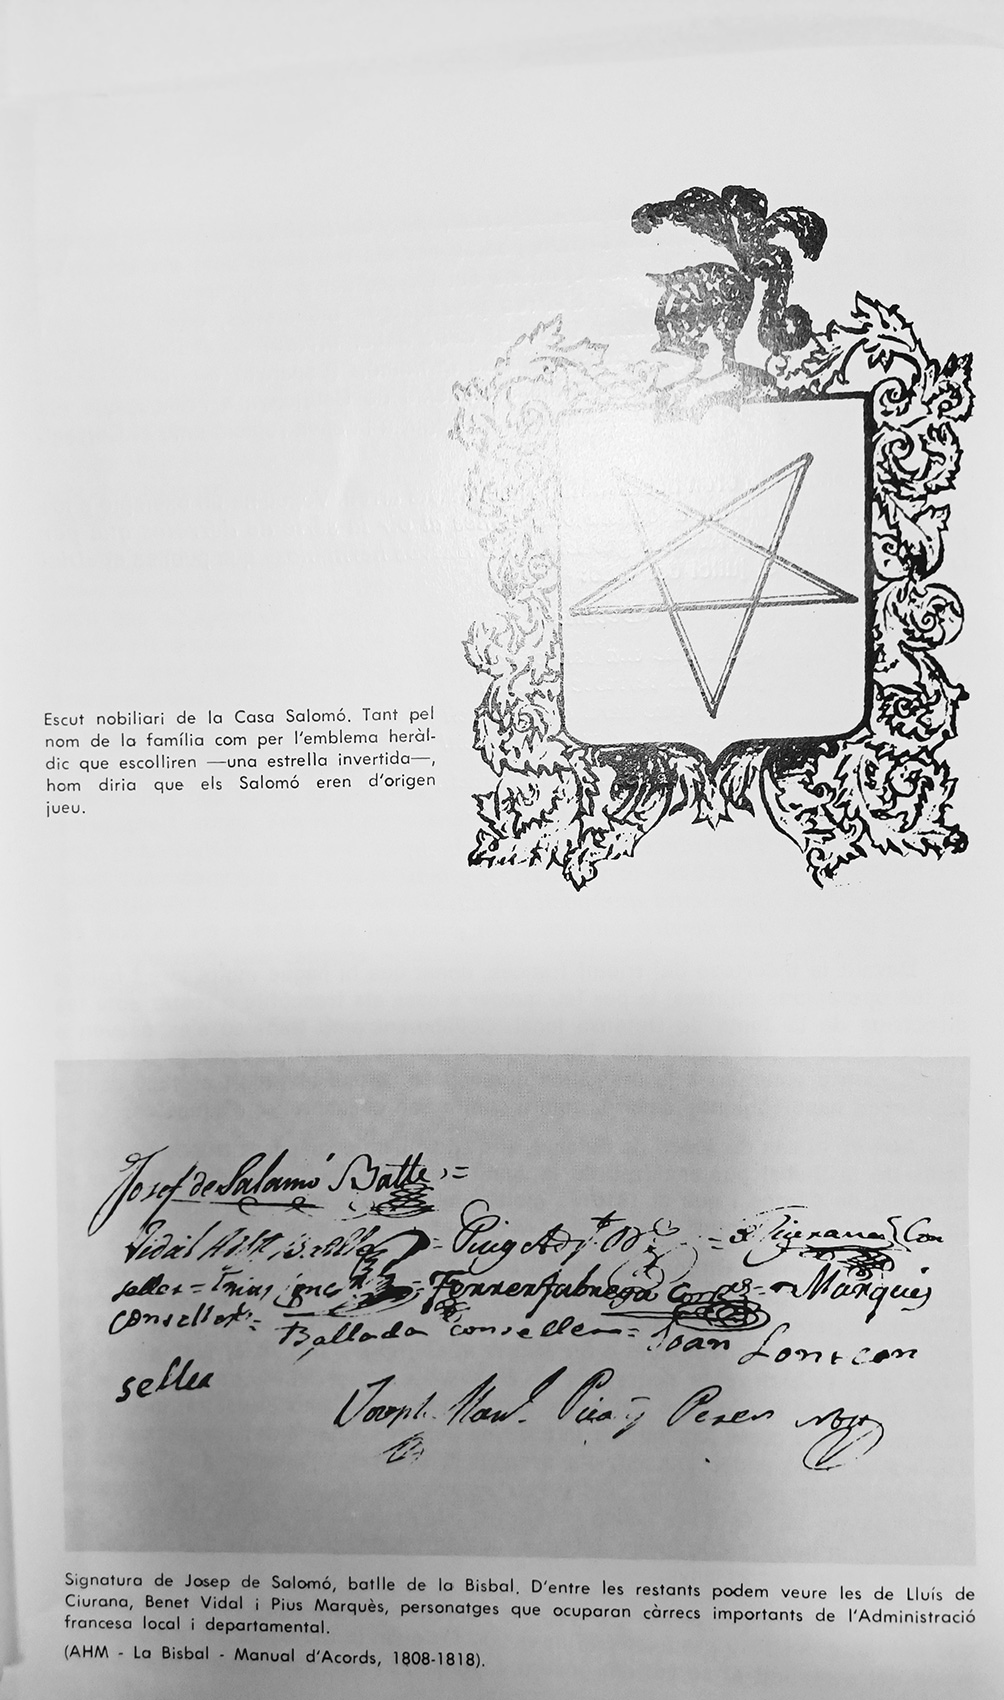 Escut nobiliari de la Casa Salomó. Tant pel
nom de la família com per l'emblema heràl-
dic que escolliren —una estrella invertida—,
hom diria que els Salomó eren d'origen
jueu.
Josef de Salamó Batlle =
Vidal = Puig = Ciurana Con
seller = = Ferrer Fabrega = Marquès
Conseller =
Ballada Conseller = Joan con
seller
Joseph Puig y Perer
Signatura de Josep de Salomó, batlle de la Bisbal. D'entre les restants podem veure les de Lluís de
Ciurana, Benet Vidal i Pius Marquès, personatges que ocuparan càrrecs importants de l'Administració
francesa local i departamental.
(AHM - La Bisbal - Manual d'Acords, 1808-1818).